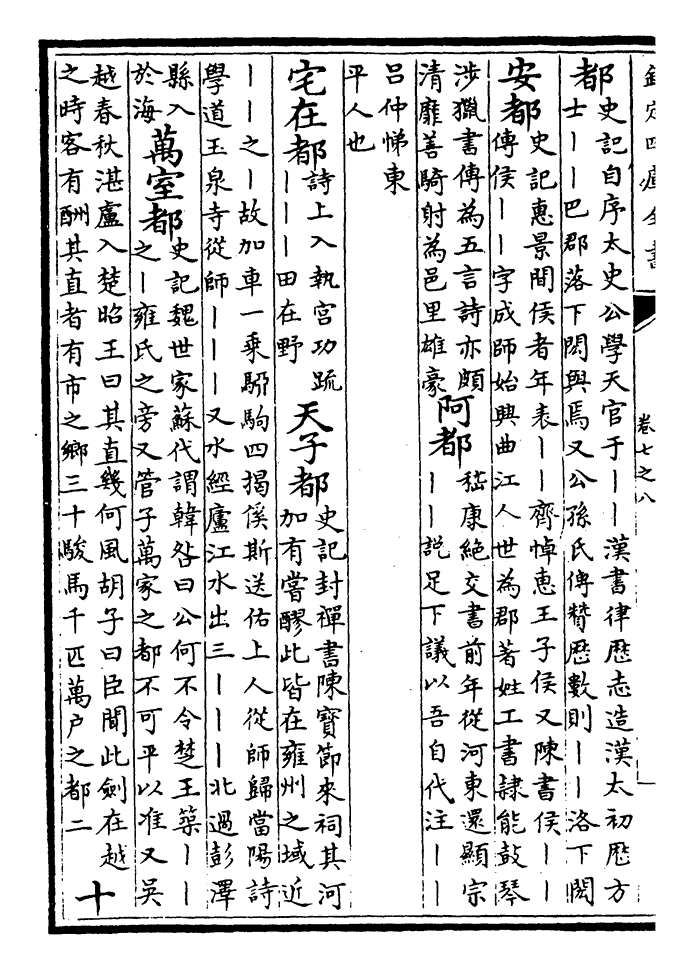 欽定四庫全書
卷七之八
都 史記自序太史公學天官于丨丨漢書律歷志造漢太初歷方
士丨丨巴郡落下閎與焉又公孫氏傳贊歷數則丨丨洛下閎
安都 史記惠景間侯者年表丨丨齊悼惠王子侯又陳書侯丨丨
傳侯丨丨字成師始興曲江人世為郡著姓工書隸能鼓琴
涉獵書傳為五言詩亦頗
清靡善騎射為邑里雄豪
阿都 嵇康絶交書前年從河東還顯宗
丨丨説足下議以吾自代注丨丨
吕仲悌東
平人也
宅在都 詩上入執宫功疏
丨丨丨田在野
天子都 史記封禪書陳寶節來祠其河
加有嘗醪此皆在雍州之域近
丨丨之丨故加車一乗駵駒四揭傒斯送佑上人從師歸當陽詩
學道玉泉寺從師丨丨丨又水經廬江水出三丨丨丨北過彭澤
縣入
於海
萬室都 史記魏世家蘇代謂韓咎曰公何不令楚王築丨丨
之丨雍氏之旁又管子萬家之都不可平以准又吳
越春秋湛盧入楚昭王曰其直幾何風胡子曰臣聞此劍在越
之時客有酬其直者有市之鄉三十駿馬千匹萬户之都二
十